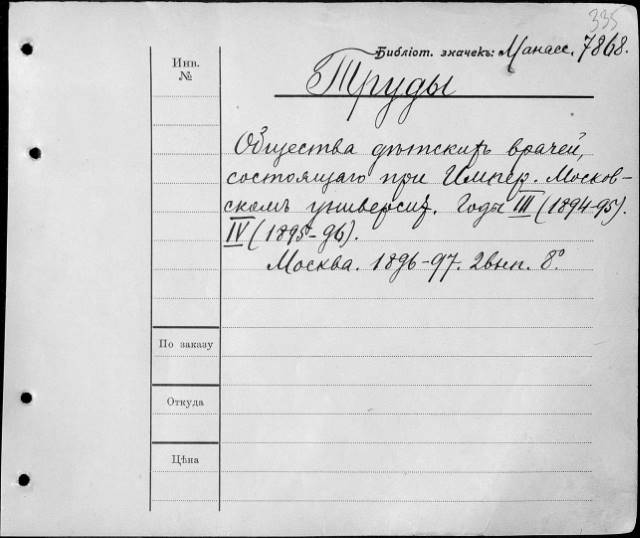 335
Библіот. значекъ: Манасс. 7868.
Инв.
№
Труды
Общества дѣтскихъ врачей,
состоящаго при Импер. Москов-
скомъ университ. Годы III (1894-95).
IV (1895-96).
Москва. 1896-97. 2 вып. 8º
По заказу
Откуда
Цѣна